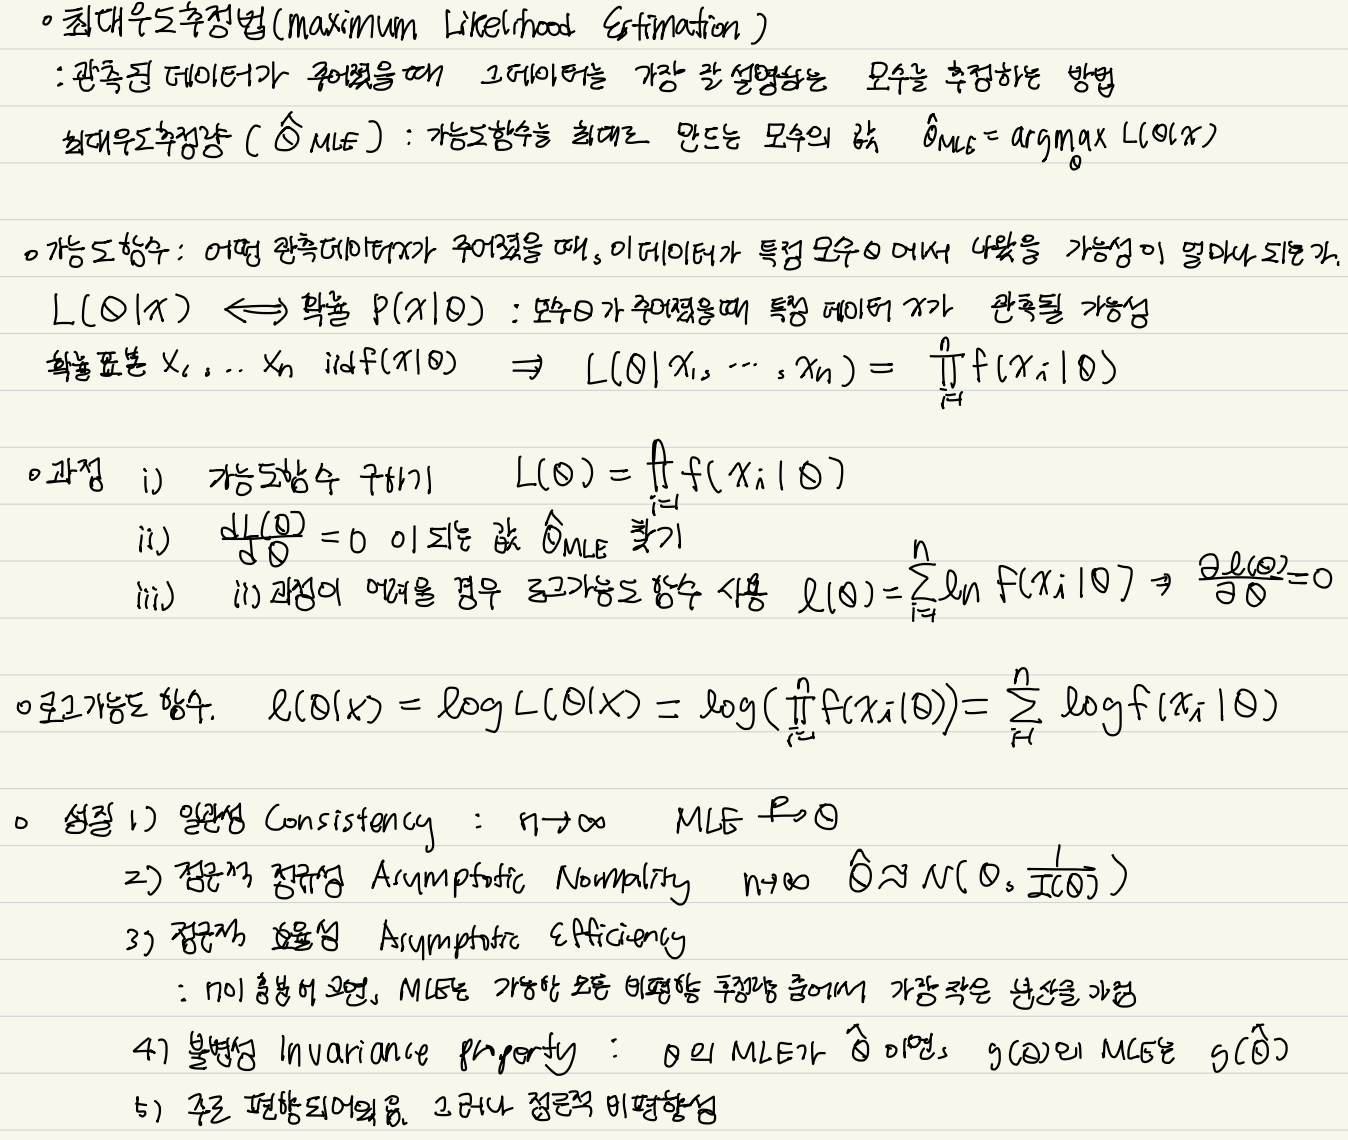 ∘ 최대우도추정법(maximum Likelihood Estimation)
: 관측된 데이터가 주어졌을때 그데이터를 가장 잘 설명하는 모수를 추정하는 방법
최대우도추정량 ( θ̂ MLE ) : 가능도함수를 최대로 만드는 모수의 값 θ̂MLE = argmax_θ L(θ|x)
∘ 가능도함수 : 어떤 관측데이터x가 주어졌을 때, 이데이터가 특정 모수θ에서 나왔을 가능성이 얼마나 되는가.
L(θ|x) ⟺ 확률 P(x|θ) : 모수θ가 주어졌을때 특정 데이터 x가 관측될 가능성
확률 표본 X₁, … Xn iid f(x|θ) ⇒ L(θ|x₁, ⋯, xn) = ∏_{i=1}^{n} f(xi|θ)
∘ 과정 i) 가능도함수 구하기 L(θ) = ∏_{i=1}^{n} f(xi|θ)
ii) dL(θ)/dθ = 0 이되는 값 θ̂MLE 찾기
iii) ii)과정이 어려울 경우 로그가능도 함수 사용 ℓ(θ) = ∑_{i=1}^{n} ln f(xi|θ) → ∂ℓ(θ)/∂θ = 0
∘ 로그가능도 함수. ℓ(θ|x) = log L(θ|x) = log(∏_{i=1}^{n} f(xi|θ)) = ∑_{i=1}^{n} log f(xi|θ)
∘ 성질 1) 일관성 Consistency : n→∞ MLE →ᴾ θ
2) 점근적 정규성 Asymptotic Normality n→∞ θ̂ ≈ N(θ, 1/I(θ))
3) 점근적 효율성 Asymptotic Efficiency
: n이 충분히 크면, MLE는 가능한 모든 비편향 추정량 중에서 가장 작은 분산을 가짐
4) 불변성 Invariance property : θ의 MLE가 θ̂ 이면, g(θ)의 MLE는 g(θ̂)
5) 주로 편향되어있음. 그러나 점근적 비편향성